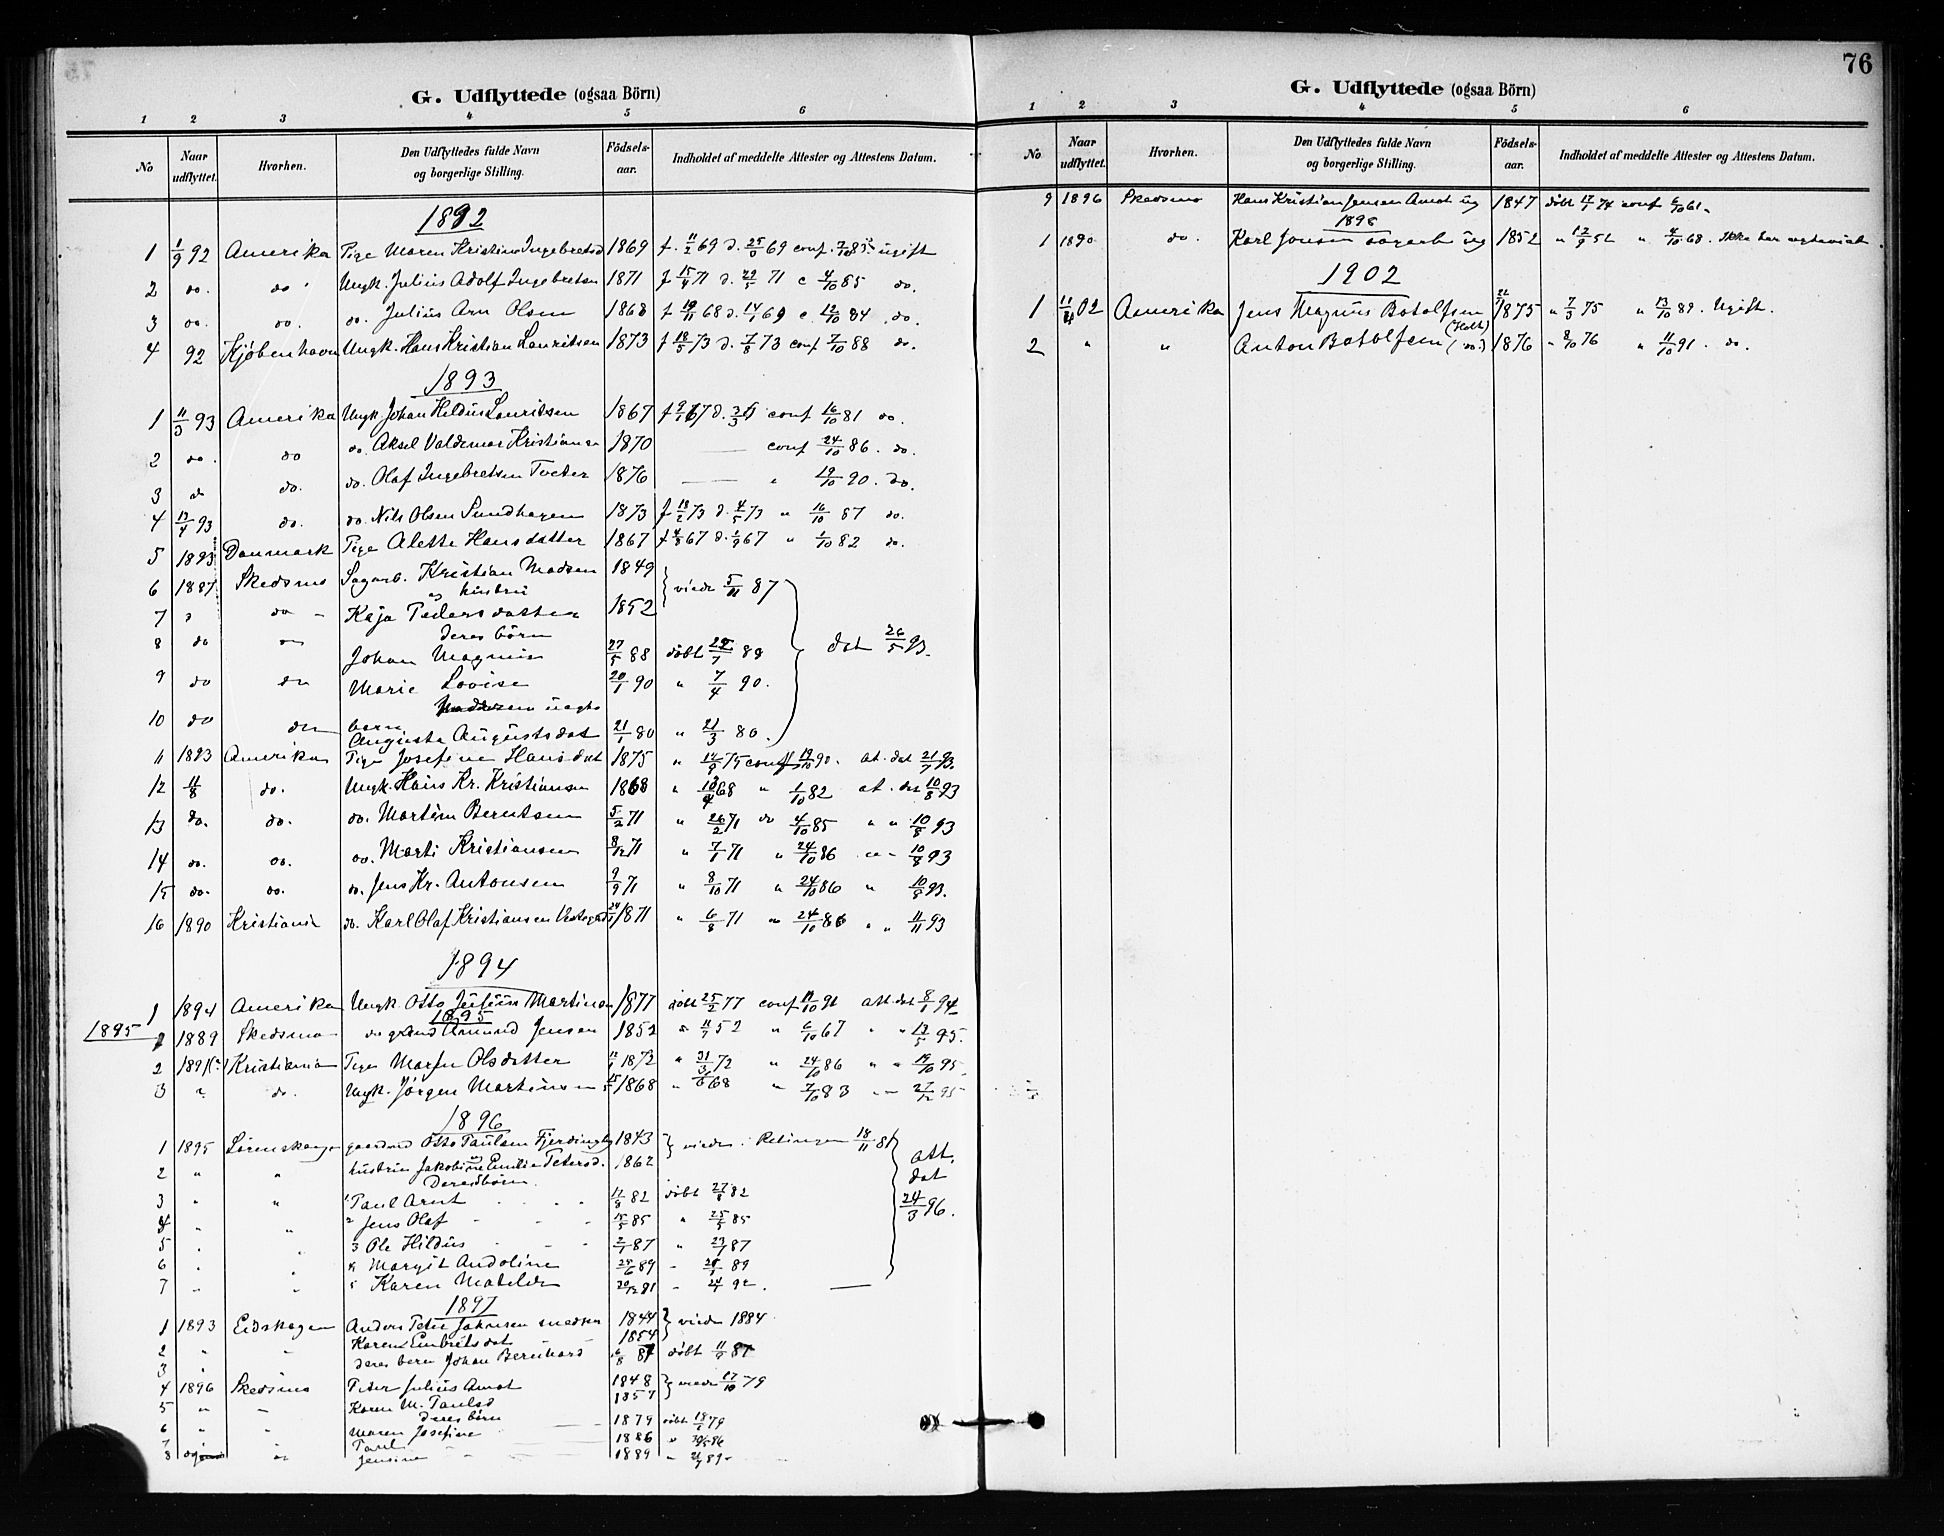 G. Udflyttede (ogsaa Börn)
1 2 3 4 5 6
No Naar udflyttet. Hvorhen. Den Udflyttedes fulde Navn og borgerlige Stilling. Födsels-aar. Indholdet af meddelte Attester og Attestens Datum.
1892
1 1/9 92 Amerika Pige Maren Kristine Ingebretsd 1869 f. 11/2 69 d. 69 conf. 85 ugift
2 do. do. Ungk. Julius Adolf Ingebretsen 1871 f 71 d. 71 c 4/10 85 do.
3 do. do. do. Julius Arn Olsen 1868 f 68 d. 69 c. 12/10 84 do.
4 92 Kjøbenhavn Ungk. Hans Kristian Lauritsen 1873 f 18/5 73 d. 7/8 73 conf 7/10 88 do.
1893
1 11/3 93 Amerika Ungk. Johan Hildus Lauritsen 1867 conf 16/10 81 do.
2 do. do do. Aksel Valdemar Kristiansen 1870 conf 24/10 86. do.
3 do do. do. Olaf Ingebretsen Tveter 1876 " 19/10 90. do.
4 13/4 93 do. do. Nils Olsen Sundhagen 1873 f 18/2 73 d. 4/5 73 " 16/10 87 do.
5 1893 Danmark Pige Alette Hansdatter 1867 f 4/8 67 d. 1/9 67 " 1/10 82 do.
6 1887 Skedsmo Sagarb. Kristian Madsen 1849 viede 5/11 87
og hustru
7 " do Kaja Pedersdatter 1852
deres börn
8 do do Johan Magnus 27/5 88 döbt 88 dat 26/5 93.
9 do do Marie Lovise 20/1 90 " 7/4 90.
uegte
10 do do barn Augusta Augustsdat 21/1 80 " 21/3 80.
11 1893 Amerika Pige Josefine Hansdat 1875 " 14/9 75 conf 19/10 90. at. dat 21/7 93.
12 11/8 do. Ungk. Hans Kr. Kristiansen 1868 " 68 " 1/10 82 at. dat 10/8 93
13 do. do. do. Martin Berntsen 5/2 71 " 26/2 71 do 4/10 85 " " 10/8 93
14 do. do. do. Marti Kristiansen 8/12 71 " 7/1 71 " 24/10 86 " " 10/8 93
15 do. do. do. Jens Kr. Antonsen 9/9 71 " 8/10 71 " 24/10 86 " 10/8 93.
16 1890 Kristiania do. Karl Olaf Kristiansen 1871 " 6/8 71 " 24/10 86 " " 11/11 93
1894
1 1894 Amerika Ungk. Otto Julius Martinsen 1877 döbt 25/2 77 conf 91 att. dat 8/1 94
1895
1895 1889 Skedsmo Amund Jensen 1852 " 11/7 52 " 6/10 67 " " 13/5 95.
2 Kristiania Pige Maren Olsdatter 1872 " 31/3 72 " 24/10 86 " " 19/10 95.
3 " do. Ungk. Jörgen Martinsen 1868 " 68 " 7/10 83 " 27/12 95
1896
1 1895 Lörenskogen gaardmd Otto Paulsen Fjerdingby 1843 viede i Relingen 18/11 81
2 " " hustru Jakobine Emilie Petersd. 1862
Deres börn
att. dat 24/3 96.
3 " " 1 Paul Arnt 82 döbt 82
4 " " 2 Jens Olaf 15/5 85 " 25/5 85
5 " " 3 Ole Hildus 2/1 87 " 23/1 87
6 " " 4 Margit Andoline 89 " 89
7 " " 5 Karen Matilde 20/12 81 " 92.
1897
1 1893 Eidskogen Anders Peter Johnsen 1844 viede 1884
2 " " Karen Embretsdat 1854
3 " deres barn Johan Bernhard 6/8 87 döbt 11/9 87
4 1896 Skedsmo Peter Julius Amot 1848 viede 17/10 79
5 " " Karen M. Paulsd 1857
deres börn
6 " " Maren Josefine 1879 döbt 79
7 Paul 1886 " 86
8 Jensine 1889 " 89
76
G. Udflyttede (ogsaa Börn)
1 2 3 4 5 6
No Naar udflyttet. Hvorhen. Den Udflyttedes fulde Navn og borgerlige Stilling. Födsels-aar. Indholdet af meddelte Attester og Attestens Datum.
9 1896 Skedsmo Hans Kristian Jensen Amot ug 1847 döbt conf 6/10 61
1898
1 1890 do. Karl Jonsen sagarb ug 1852 " 12/9 52 " 4/10 68. Ikke har
1902
1 02 Amerika Jens Magnus Botolfsen (Holt) 1875 " 7/3 75 " 13/10 89. Ugift.
2 " " Anton Botolfsen (do.) 1876 " 8/10 76 " 11/10 91. do.